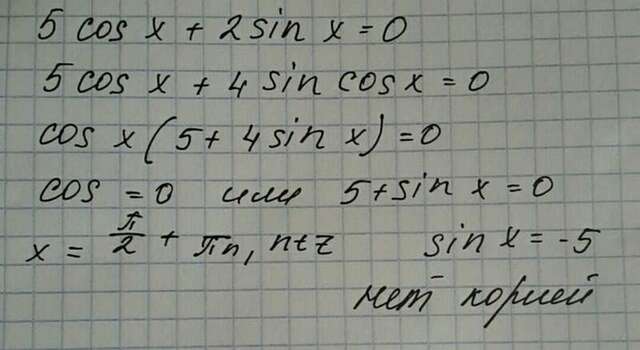 5 cos x + 2 sin x = 0
5 cos x + 4 sin cos x = 0
cos x (5 + 4 sin x) = 0
cos = 0 или 5 + sin x = 0
x = π/2 + πn, n∈z sin x = -5
нет корней